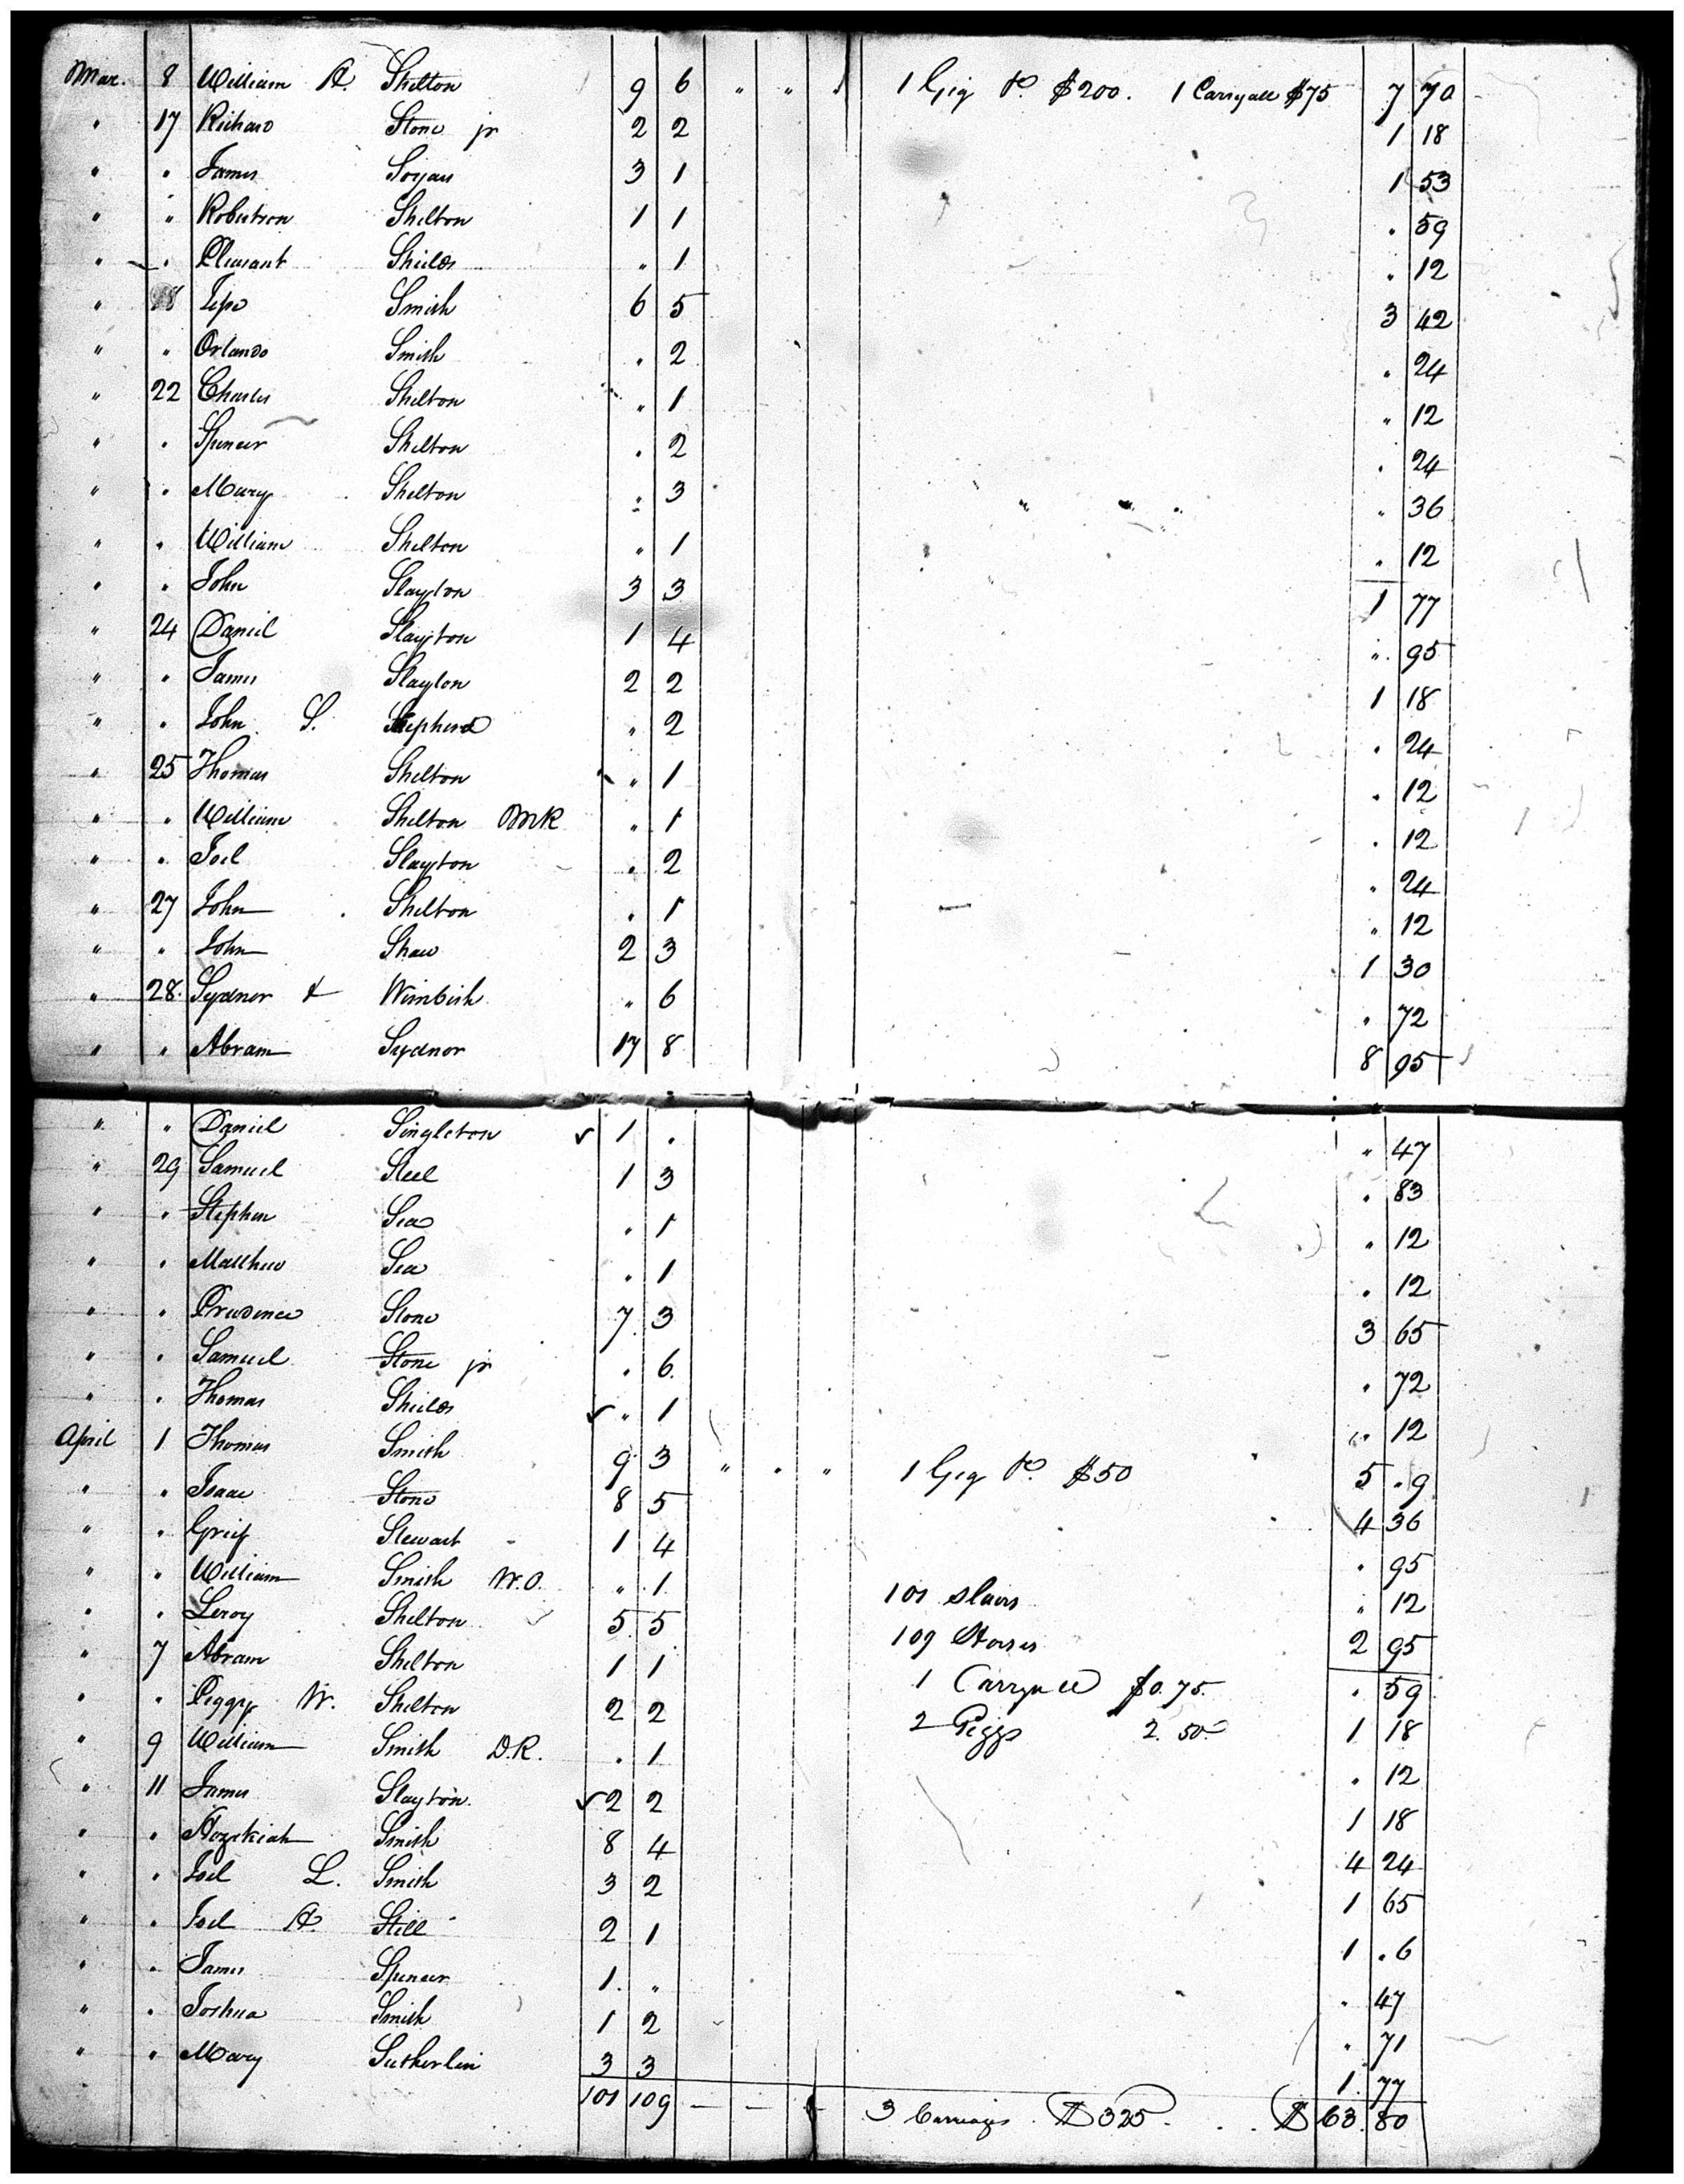 Mar. 8 William A. Shelton 9 6 " " " 1 Gig do. $200. 1 Carryall $75 7 70
" 17 Richard Stone jr 2 2 1 18
" " James Soyars 3 1 1 53
" " Robertson Shelton 1 1 " 59
" " Pleasant Shields " 1 " 12
" 18 Smith 6 5 3 42
" " Orlando Smith " 2 " 24
" 22 Charles Shelton " 1 " 12
" " Spencer Shelton " 2 " 24
" " Mary Shelton " 3 " " " " 36
" " William Shelton " 1 " 12
" " John Slayton 3 3 1 77
" 24 Daniel Slayton 1 4 " 95
" " James Slayton 2 2 1 18
" " John S. Shepherd " 2 " 24
" 25 Thomas Shelton " 1 " 12
" " William Shelton MR " 1 " 12
" " Joel Slayton " 2 " 24
" 27 John Shelton " 1 " 12
" " John Shaw 2 3 1 30
" 28 Sydnor & Wimbish " 6 " 72
" " Abram Sydnor 17 8 8 95
" " Daniel Singleton ✓ 1 " " 47
" 29 Samuel Steel 1 3 " 83
" " Stephen Sea " 1 " 12
" " Matthew Sea " 1 " 12
" " Prudence Stone 7 3 3 65
" " Samuel Stone jr " 6 " 72
" " Thomas Shields ✓ " 1 " 12
April 1 Thomas Smith 9 3 " " " 1 Gig do. $50 5 " 9
" " Isaac Stone 8 5 4 36
" " Greif Stewart 1 4 " 95
" " William Smith W.O. " 1 101 Slaves " 12
" " Leroy Shelton 5 5 109 Horses 2 95
" 7 Abram Shelton 1 1 1 Carryall $0.75 " 59
" " Peggy W. Shelton 2 2 2 Giggs 2.50 1 18
" 9 William Smith D.R. " 1 " 12
" 11 James Slayton ✓ 2 2 1 18
" " Hezekiah Smith 8 4 4 24
" " Joel L. Smith 3 2 1 65
" " Joel A. Still 2 1 1 " 6
" " James Spencer 1 " " 47
" " Joshua Smith 1 2 " 71
" " Mary Sutherlin 3 3 1 77
101 109 — — 3 Carriages $325 $63.80